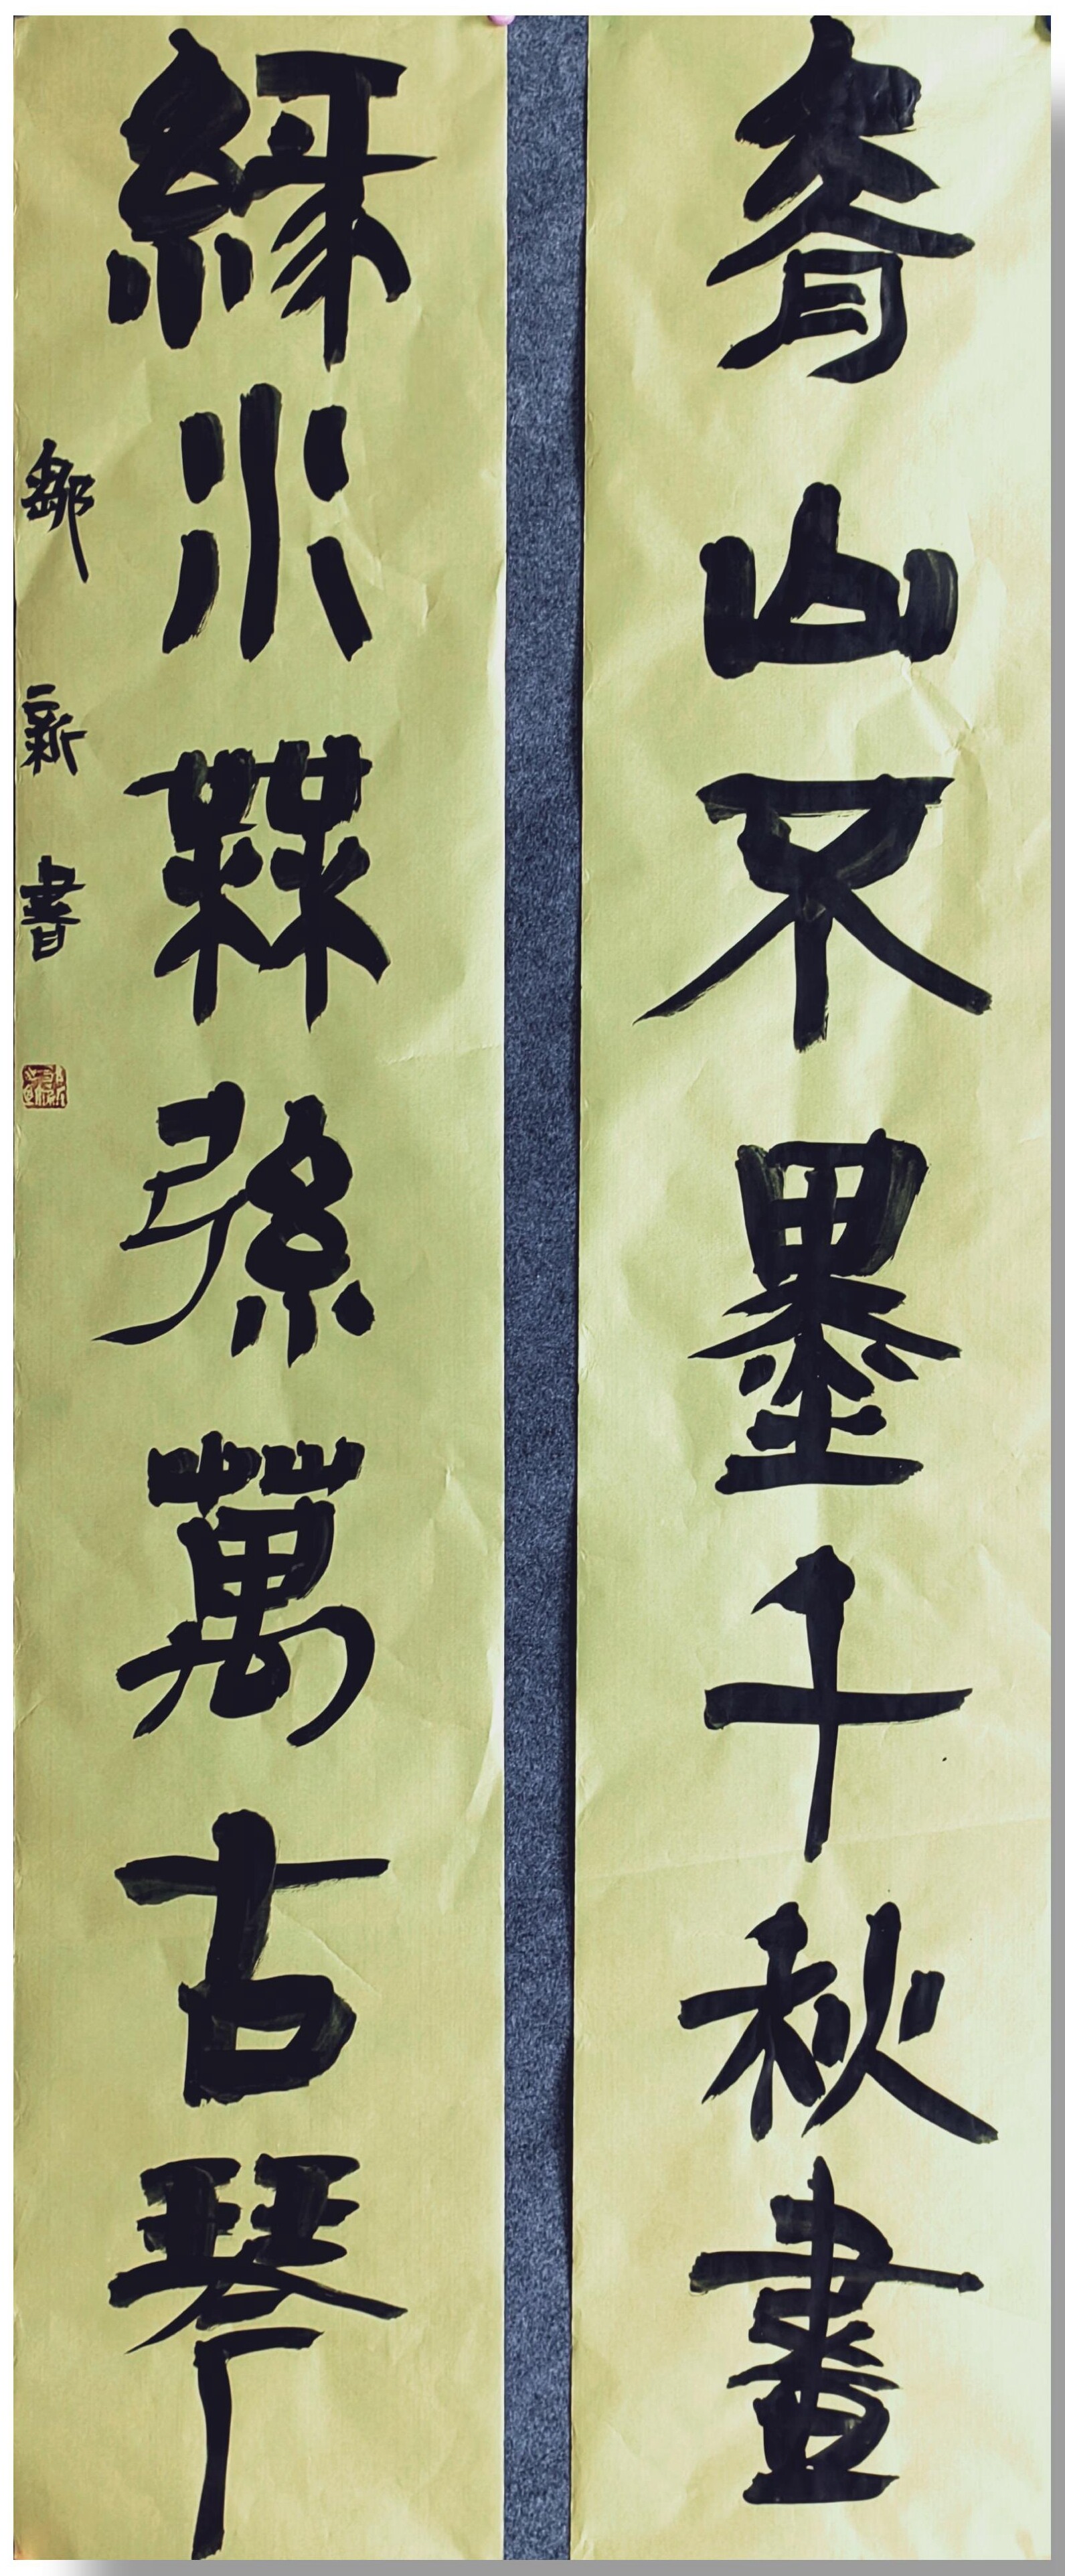 青山不墨千秋畫
綠水無弦萬古琴
鄒新書